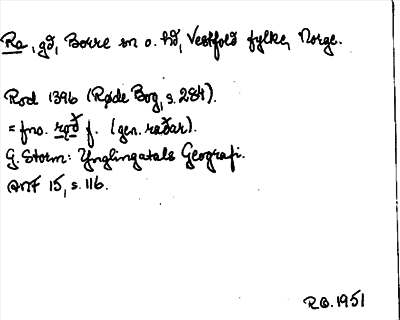 Ra, gd, Borre sn o. hd, Vestfold fylke, Norge.
Rod 1396 (Røde Bog, s. 284).
= fno. rǫð f. (gen. raðar).
G. Storm: Ynglingatals Geografi.
ANF 15, s. 116.
R.O. 1951